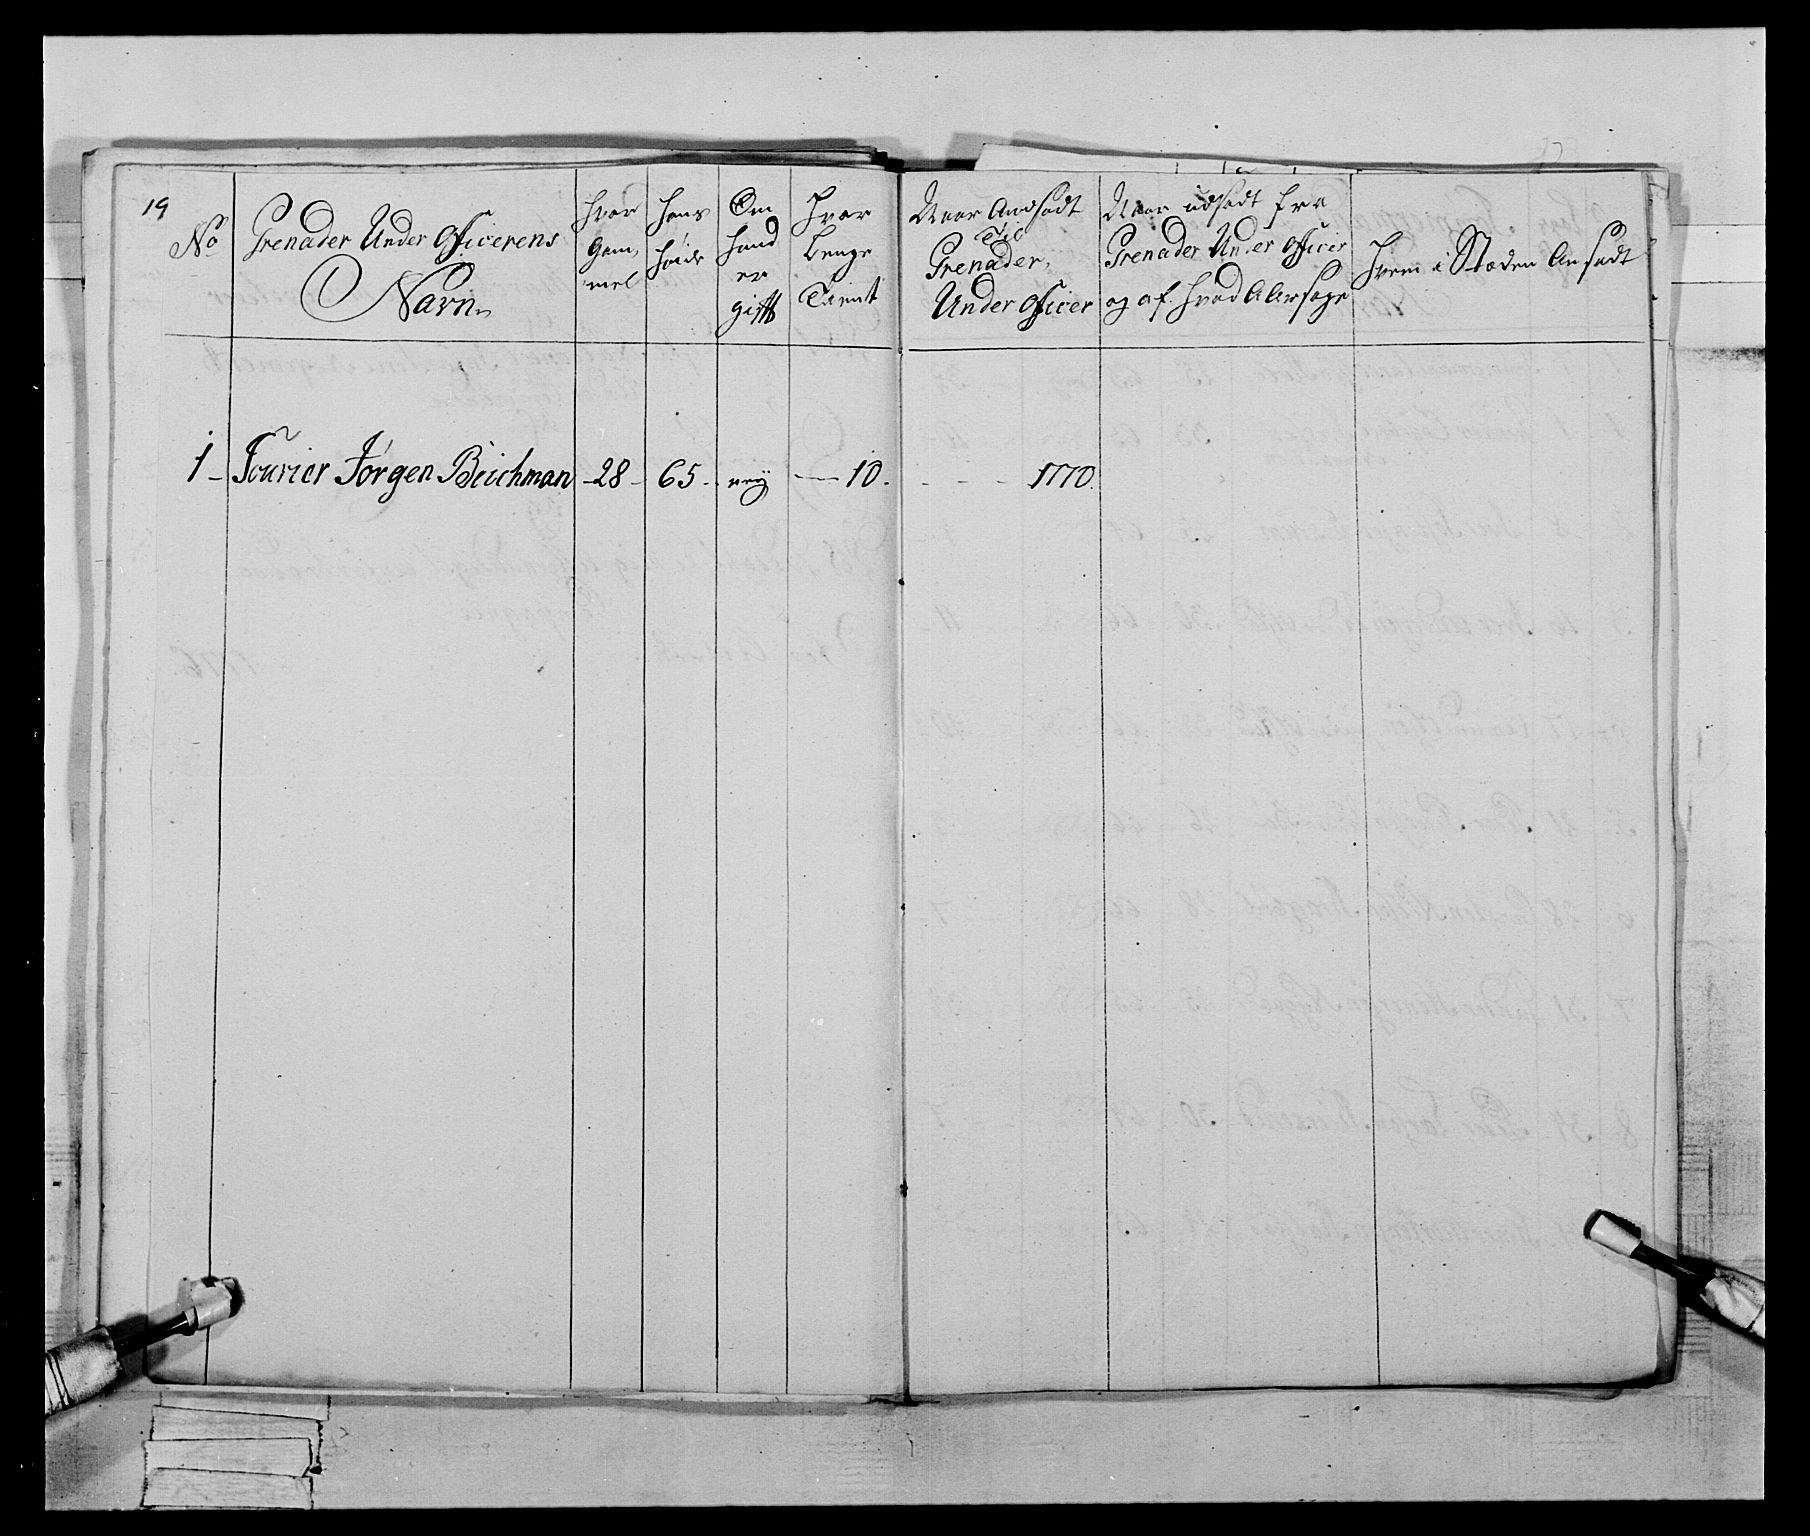 19
No
Grenader Under Officerens
Navn
hvor
Gam,
mel
hans
høide
Om
hand
er
gifft
Hvor
Lenge
Tient
Naar Andsadt
Til
Grenader,
Under Officer
Naar udsadt fra
Grenader Under Officer
og af hvad Aarsage
Hvem i Stæden Ansadt
1 - Fourier Jørgen Beichman - 28 - 65 - ney - 10 - 1770.